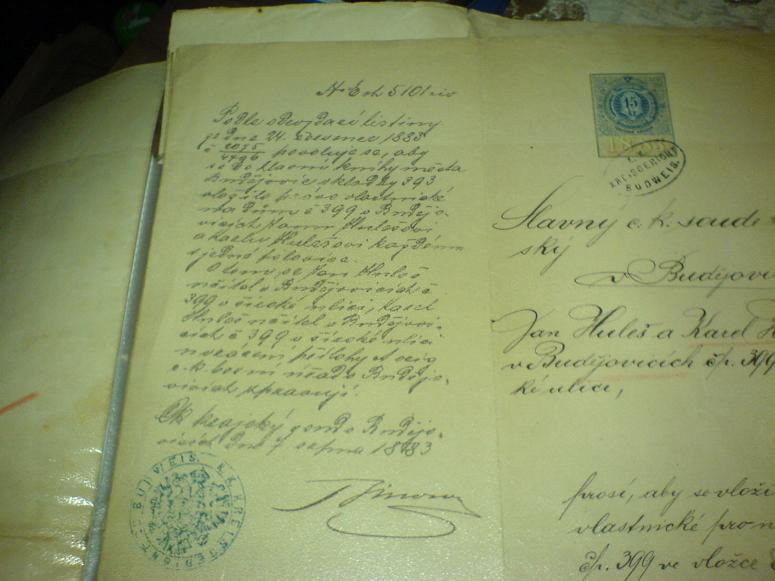 Podle odevzdací listiny
ze dne 24. 1883
č 4796 povoluje se, aby
se do hlavní knihy města
Budějovic vložky 393
vložilo právo vlastnické
na dům č 399 v Budějo-
vicích Janu Hulešovi
a Karlu Hulešovi každému
jedné polovice.
O tom se Jan Huleš
učitel v Budějovicích č
399 v široké ulici, Karel
Huleš učitel v Budějovi-
cích č 399 v široké ulici
přílohy A
c. k. berní úřad v Budějo-
vicích zpravují.
Ck krajský soud v Budějo-
vicích dne 7 srpna 1883
K. K. KREISGERICHT
BUDWEIS
15
1883
K. K.
KREISGERICHT
BUDWEIS.
Slavný c. k. soude
ský
v Budějovi
Jan Huleš a Karel H
v Budějovicích čp. 399
ké ulici,
prosí, aby se vloži
vlastnické právo
čp. 399 ve vložce